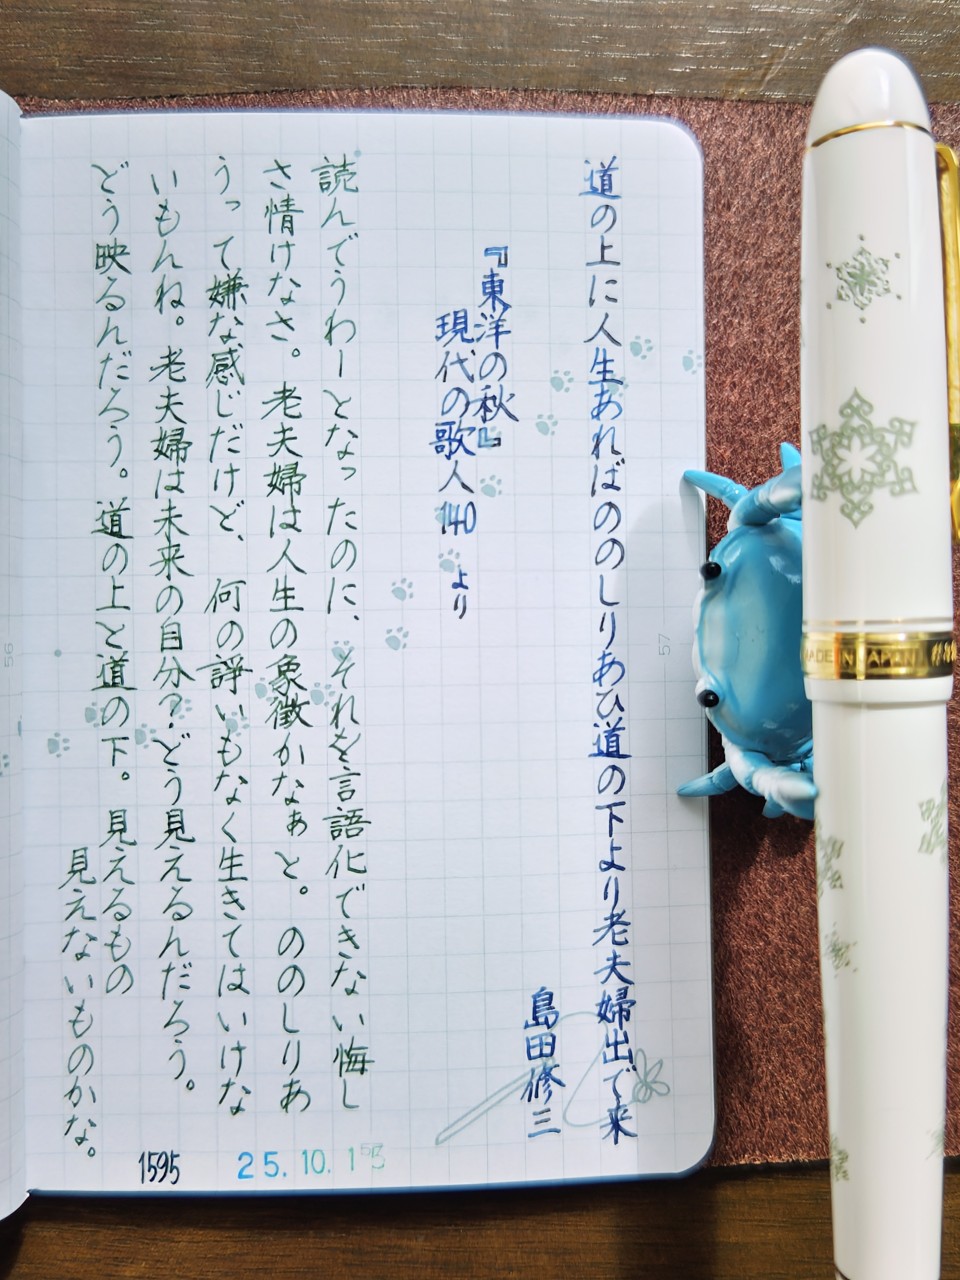 道の上に人生あればののしりあひ道の下より老夫婦出で来
島田修三
『東洋の秋』
現代の歌人140 より
読んでうわーとなったのに、それを言語化できない悔し
さ情けなさ。老夫婦は人生の象徴かなぁと。ののしりあ
うって嫌な感じだけど、何の諍いもなく生きてはいけな
いもんね。老夫婦は未来の自分?どう見えるんだろう。
どう映るんだろう。道の上と道の下。見えるもの
見えないものかな。
1595
25.10.1
57
56
MADE IN JAPAN